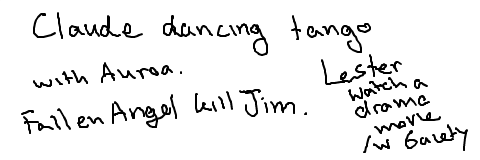 Claude dancing tango
with Auroa.
Fallen Angel kill Jim.
Lester
watch a
drama
movie
/w Gaiety